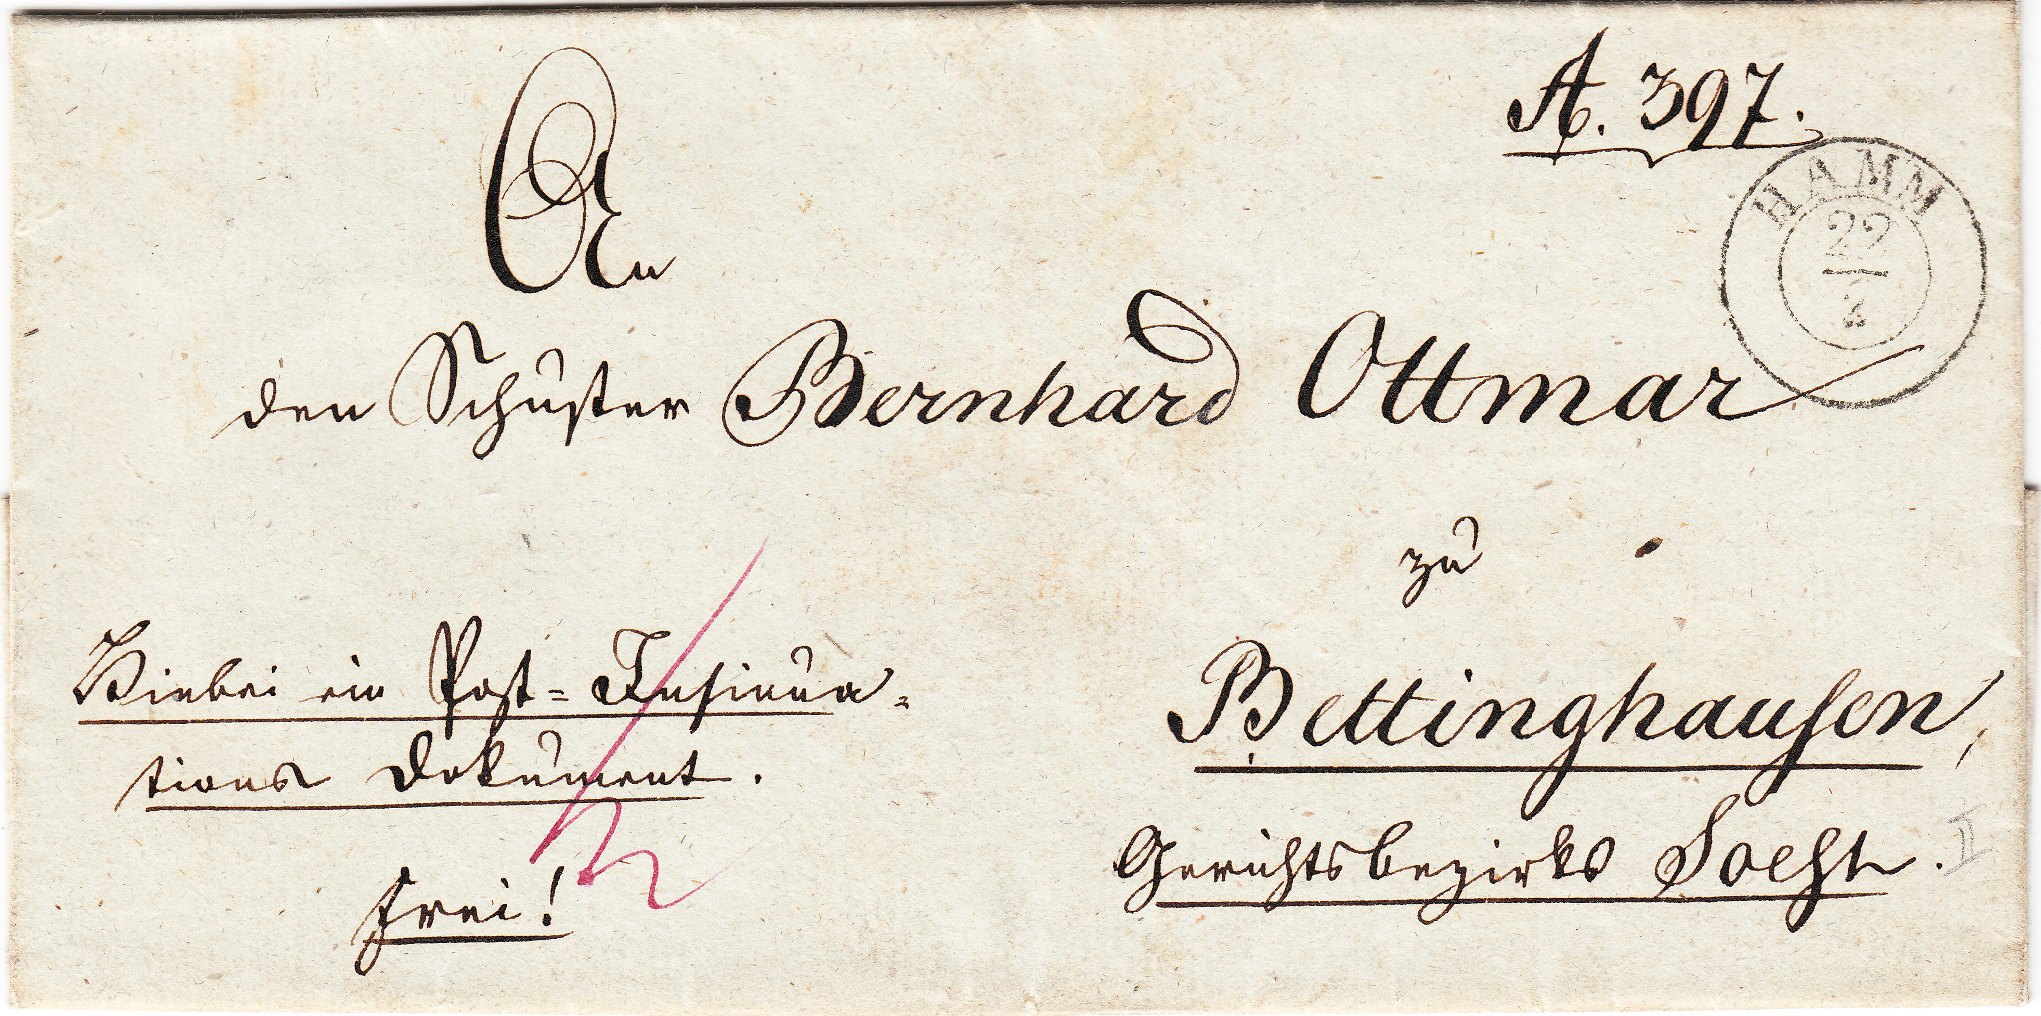 A. 397.
HAMM
22
2
An
den Schuster Bernhard Ottmar
zu
Bettinghausen,
Gerichtsbezirks Soest.
Hiebei ein Post=Insinua=
tions Dokument.
frei!